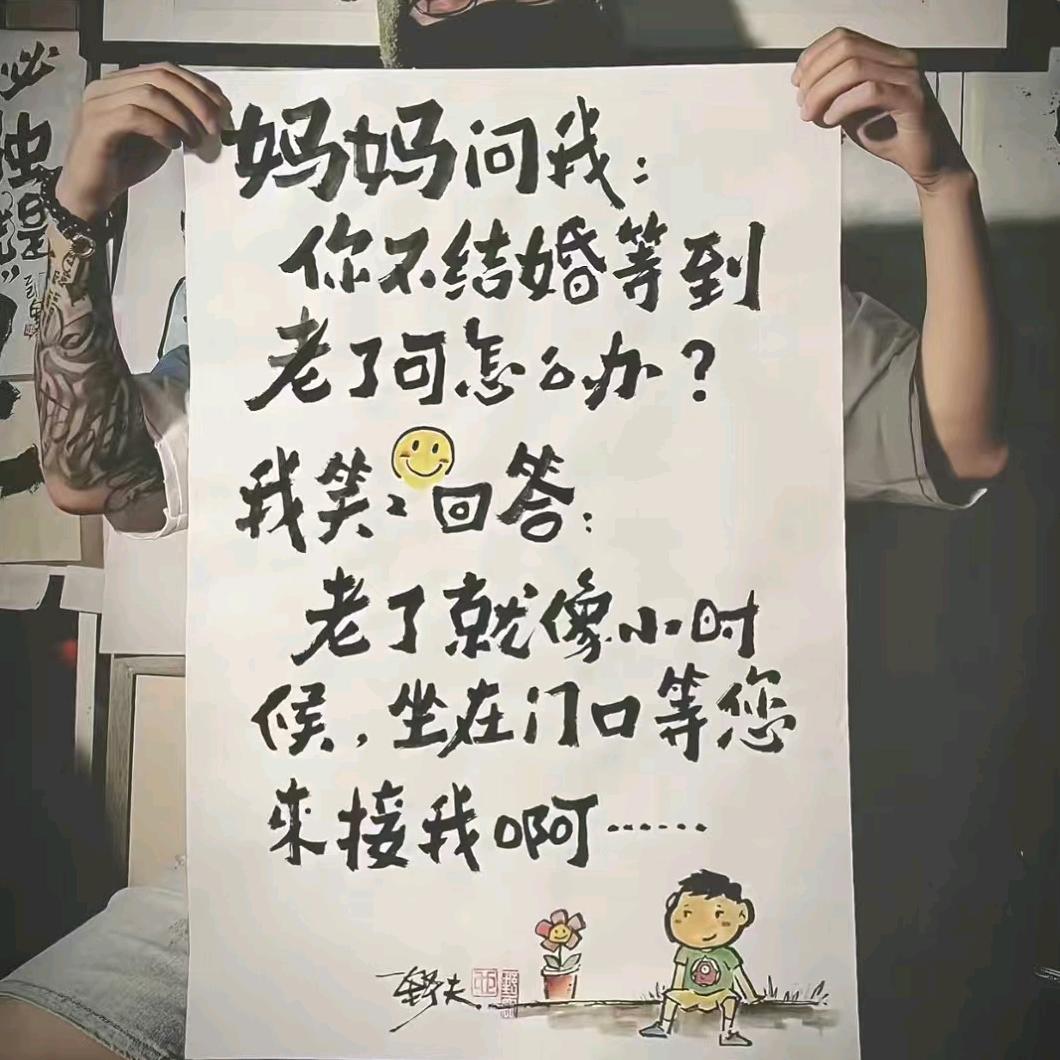 妈妈问我：
你不结婚等到
老了可怎么办？
我笑笑回答：
老了就像小时
候，坐在门口等您
来接我啊……
一野夫